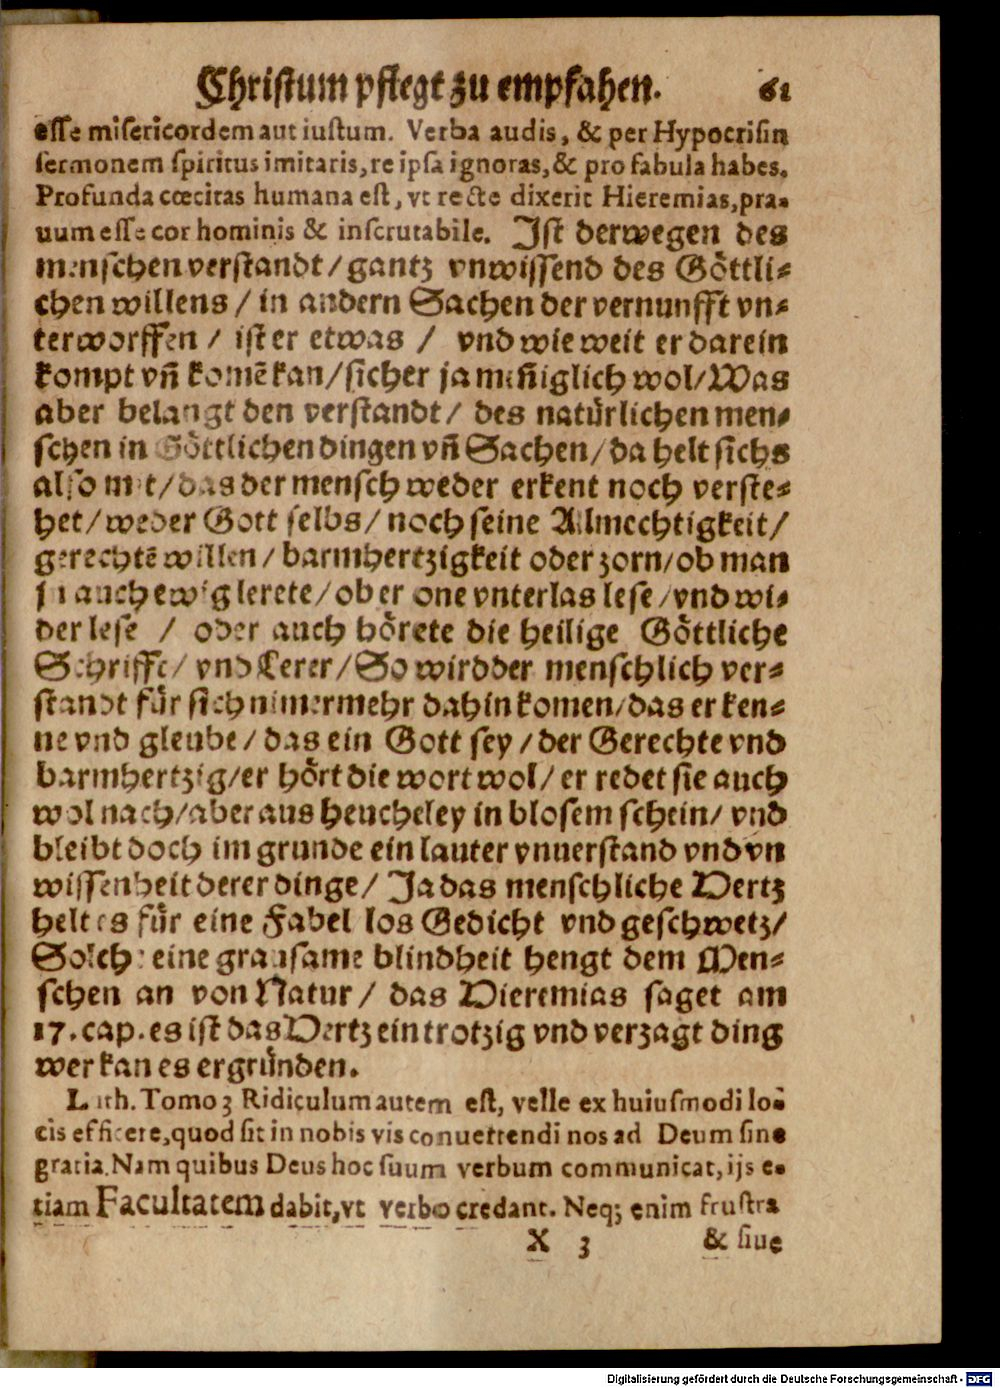 Christum pflegt zu empfahen. 61
esse misericordem aut iustum. Verba audis, & per Hypocrisin
sermonem spiritus imitaris, re ipsa ignoras, & pro fabula habes.
Profunda cœcitas humana est, vt recte dixerit Hieremias, pra-
uum esse cor hominis & inscrutabile. Ist derwegen des
menschen verstandt / gantz vnwissend des Göttli-
chen willens / in andern Sachen der vernunfft vn-
terworffen / ist er etwas / vnd wie weit er darein
kompt vñ komē kan / sicher ja meñiglich wol / Was
aber belangt den verstandt / des natürlichen men-
schen in Göttlichen dingen vñ Sachen / da helt sichs
also mit / das der mensch weder erkent noch verste-
het / weder Gott selbs / noch seine Allmechtigkeit /
gerechtē willen / barmhertzigkeit oder zorn / ob man
jn auch ewig lerete / ob er one vnterlas lese / vnd wi-
der lese / oder auch hörete die heilige Göttliche
Schrifft / vnd Lerer / So wird der menschlich ver-
standt für sich nimermehr dahin komen / das er ken-
ne vnd gleube / das ein Gott sey / der Gerechte vnd
barmhertzig / er hört die wort wol / er redet sie auch
wol nach / aber aus heucheley in blosem schein / vnd
bleibt doch im grunde ein lauter vnuerstand vnd vn
wissenheit derer dinge / Ja das menschliche Hertz
helt es für eine Fabel los Gedicht vnd geschwetz /
Solche eine grausame blindheit hengt dem Men-
schen an von Natur / das Hieremias saget am
17. cap. es ist das Hertz ein trotzig vnd verzagt ding
wer kan es ergründen.
Luth. Tomo 3 Ridiculum autem est, velle ex huiusmodi lo-
cis efficere, quod sit in nobis vis conuertendi nos ad Deum sine
gratia. Nam quibus Deus hoc suum verbum communicat, ijs e-
tiam Facultatem dabit, vt verbo credant. Neq; enim frustra
X 3 & siue
Digitalisierung gefördert durch die Deutsche Forschungsgemeinschaft - DFG